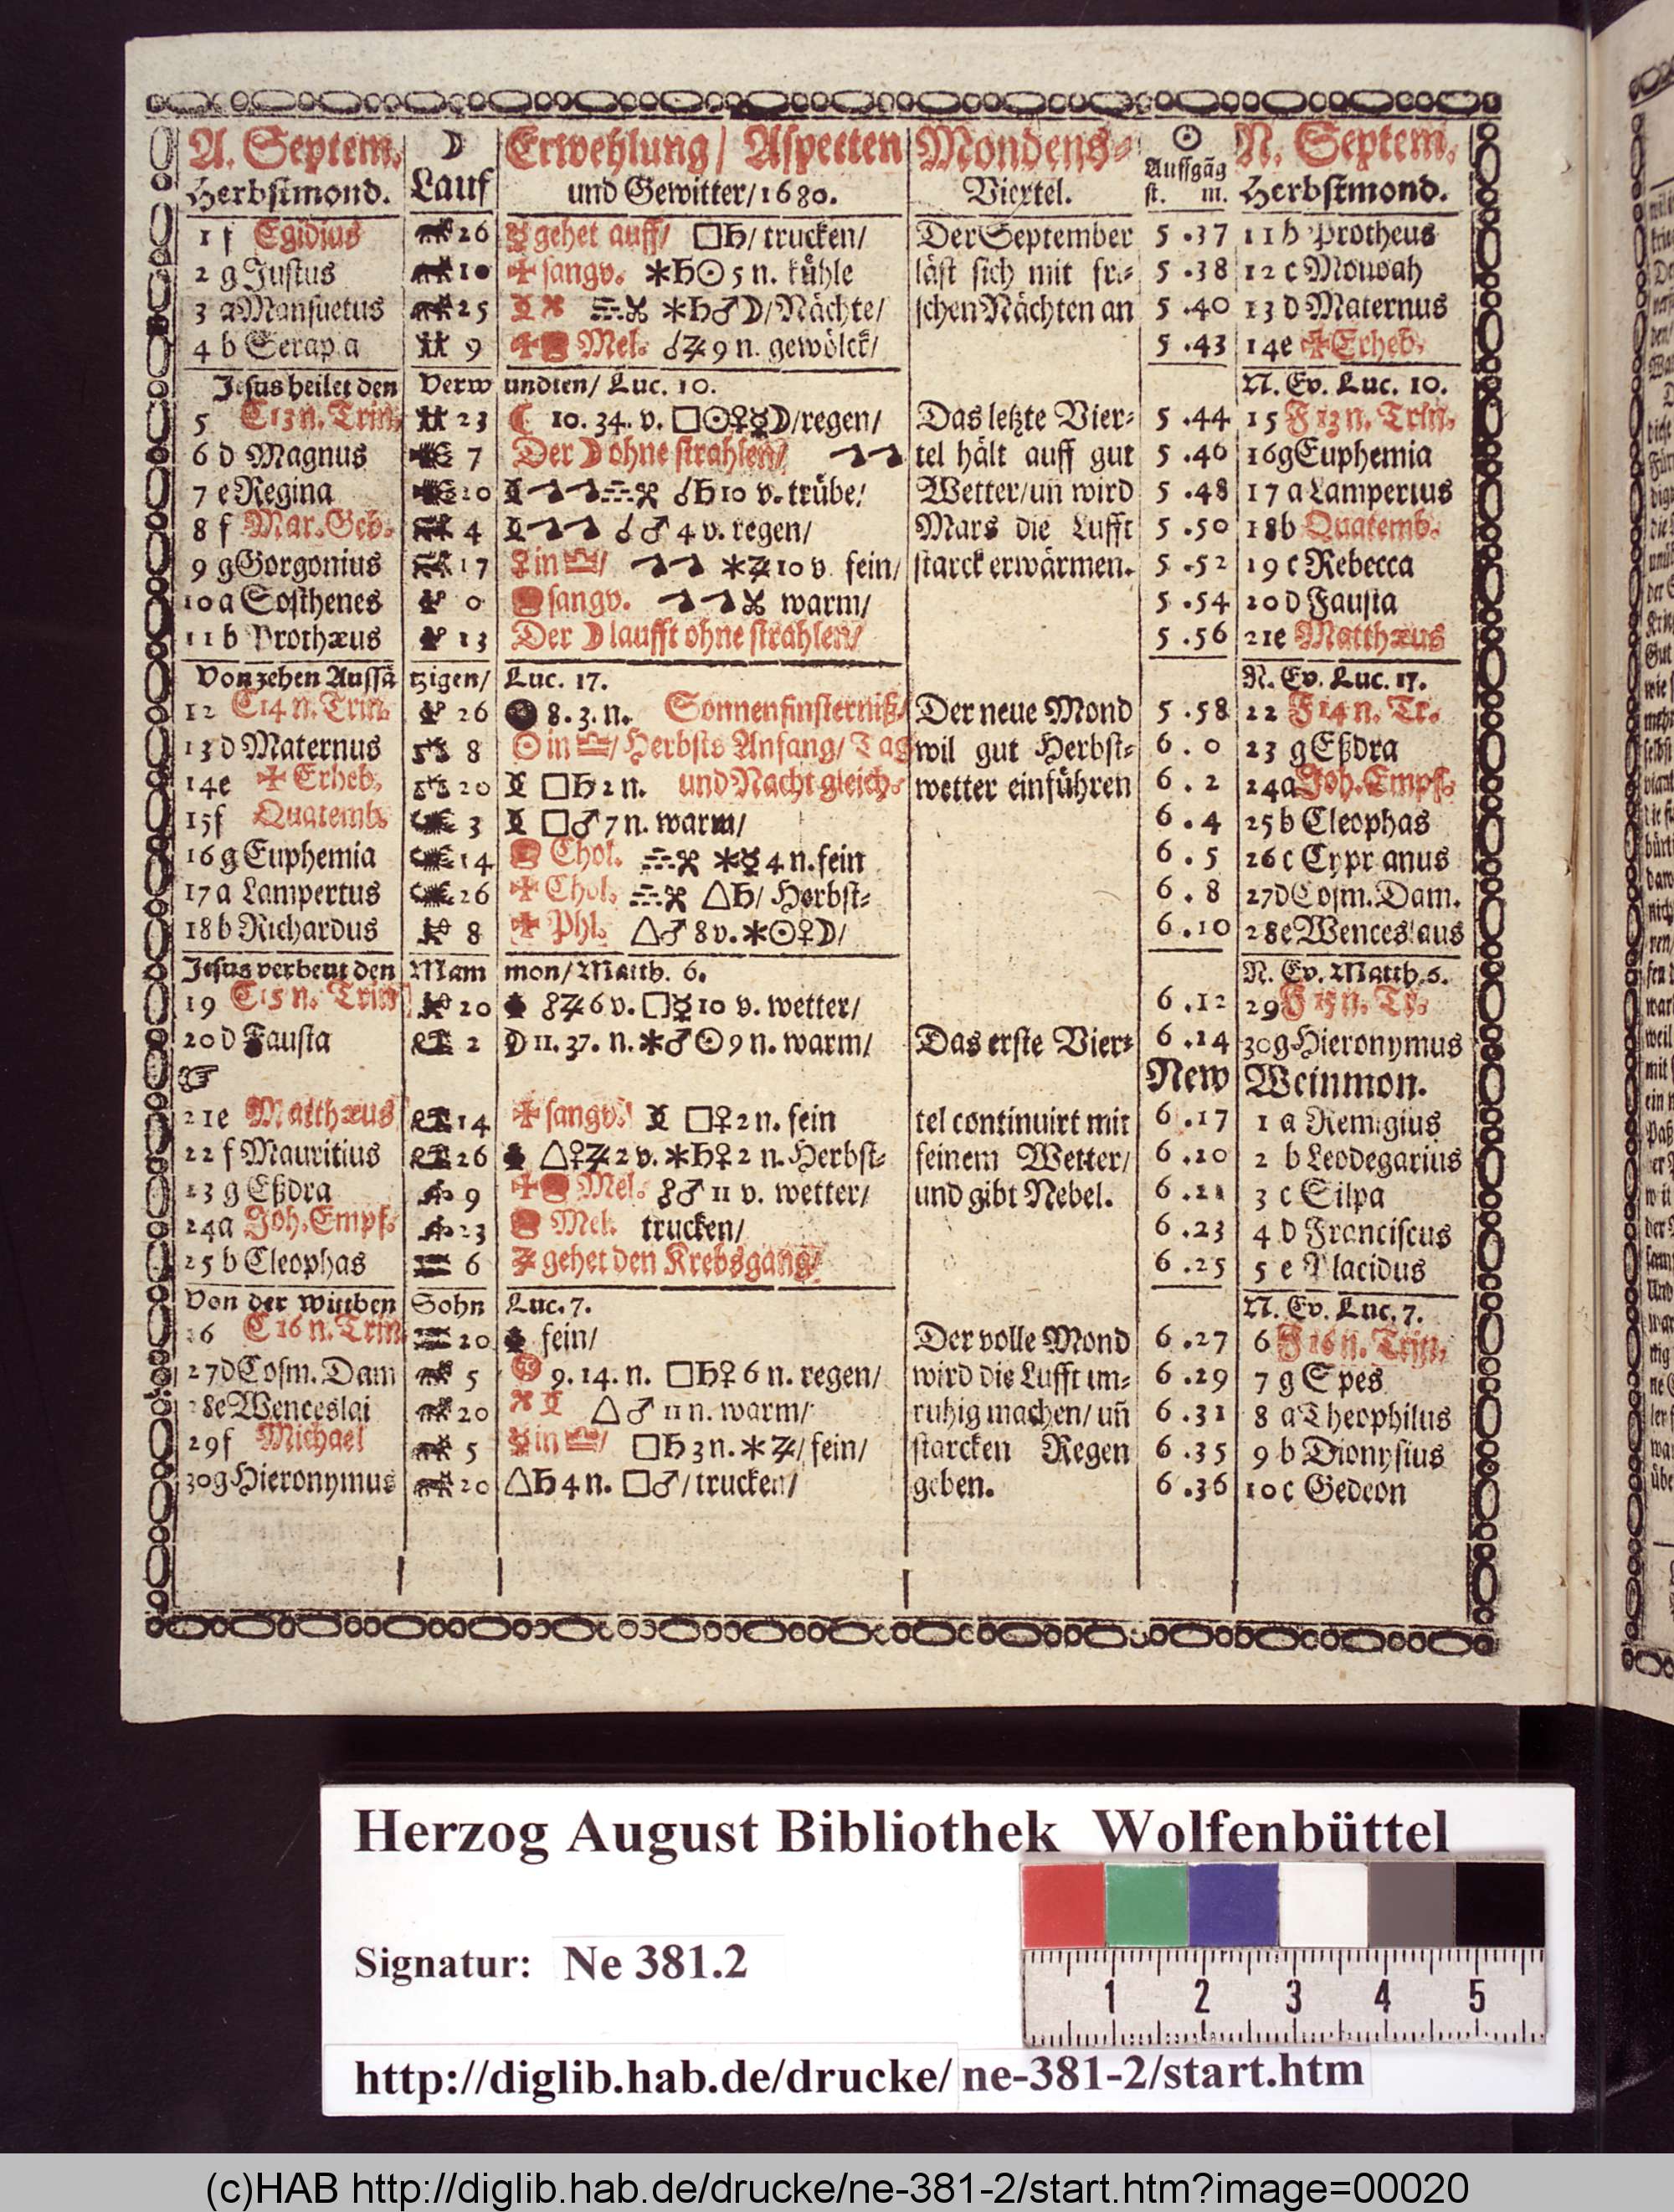 A. Septem. ☽ Erwehlung/ Aspecten Mondens- ☉ N. Septem.
Herbstmond. Lauf und Gewitter/1680. Viertel. Auffgãg st. m. Herbstmond.
1 f Egidius 26 ☿ gehet auff/ □♄/ trucken/ Der September 5 .37 11 b Protheus
2 g Justus 10 ✠ sangv. ⚹♄☉ 5 n. kühle läst sich mit fri- 5 .38 12 c
3 a Mansuetus 25 ⚹♄♂☽/ Nächte/ schen Nächten an 5 .40 13 d Maternus
4 b Serap a 9 ✠ Mel. ☌♃ 9 n. gewölck/ 5 .43 14 e ✠ Erheb.
Jesus heilet den Verw undten/ Luc. 10. N. Ev. Luc. 10.
5 C 13 n. Trin. 23 ☾ 10. 34. v. □☉♀☿☽/regen/ Das letzte Vier- 5 .44 15 F 13 n. Trin.
6 d Magnus 7 Der ☽ ohne strahlen/ tel hält auff gut 5 .46 16 g Euphemia
7 e Regina 20 ☌♄ 10 v. trübe/ Wetter/ uñ wird 5 .48 17 a Lampertus
8 f Mar. Geb. 4 ☌♂ 4 v. regen/ Mars die Lufft 5 .50 18 b Quatemb.
9 g Gorgonius 17 ♀ in ♎/ ⚹♃ 10 v. fein/ starck erwärmen. 5 .52 19 c Rebecca
10 a Sosthenes 0 sangv. warm/ 5 .54 20 d Fausta
11 b Prothæus 13 Der ☽ laufft ohne strahlen/ 5 .56 21 e Matthæus
Von zehen Aussä tzigen/ Luc. 17. N. Ev. Luc. 17.
12 C 14 n. Trin. 26 ● 8. 3. n. Sonnenfinsterniß/ Der neue Mond 5 .58 22 F 14 n. Tr.
13 d Maternus 8 ☉ in ♎/ Herbsts Anfang/ Tag wil gut Herbst- 6 . 0 23 g Eßdra
14 e ✠ Erheb. 20 □♄ 2 n. und Nacht gleich. wetter einführen 6 . 2 24 a Joh. Empf.
15 f Quatemb. 3 □♂ 7 n. warm/ 6 . 4 25 b Cleophas
16 g Euphemia 14 Chol. ⚹☿ 4 n. fein 6 . 5 26 c Cypr anus
17 a Lampertus 26 ✠ Chol. △♄/ Herbst- 6 . 8 27 d Cosm. Dam.
18 b Richardus 8 ✠ Phl. △♂ 8 v. ⚹☉♀☽/ 6 .10 28 e Wenceslaus
Jesus verbeut den Mam mon/ Matth. 6. N. Ev. Matth. 6.
19 C 15 n. Trin 20 ☍♃ 6 v. □☿ 10 v. wetter/ 6 .12 29 F 15 n. Tr.
20 d Fausta 2 ☽ 11. 37. n. ⚹♂☉ 9 n. warm/ Das erste Vier- 6 .14 30 g Hieronymus
☞ New Weinmon.
21 e Matthæus 14 ✠ sangv. □♀ 2 n. fein tel continuirt mit 6 .17 1 a Remigius
22 f Mauritius 26 △♀♃ 2 v. ⚹♄♀ 2 n. Herbst- feinem Wetter/ 6 .20 2 b Leodegarius
23 g Eßdra 9 ✠ Mel. ☍♂ 11 v. wetter/ und gibt Nebel. 6 .21 3 c Silpa
24 a Joh. Empf. 23 Mel. trucken/ 6 .23 4 d Franciscus
25 b Cleophas 6 ♃ gehet den Krebsgang/ 6 .25 5 e Placidus
Von der wittben Sohn Luc. 7. N. Ev. Luc. 7.
26 C 16 n. Trin. 20 fein/ Der volle Mond 6 .27 6 F 16 n. Trin.
27 d Cosm. Dam 5 9. 14. n. □♄♀ 6 n. regen/ wird die Lufft un- 6 .29 7 g Spes
28 e Wenceslai 20 △♂ 11 n. warm/ ruhig machen/ uñ 6 .31 8 a Theophilus
29 f Michael 5 ☿ in ♎/ □♄ 3 n. ⚹♃/ fein/ starcken Regen 6 .35 9 b Dionysius
30 g Hieronymus 20 △♄ 4 n. □♂/ trucken/ geben. 6 .36 10 c Gedeon
Herzog August Bibliothek Wolfenbüttel
Signatur: Ne 381.2
1 2 3 4 5
http://diglib.hab.de/drucke/ne-381-2/start.htm
(c)HAB http://diglib.hab.de/drucke/ne-381-2/start.htm?image=00020